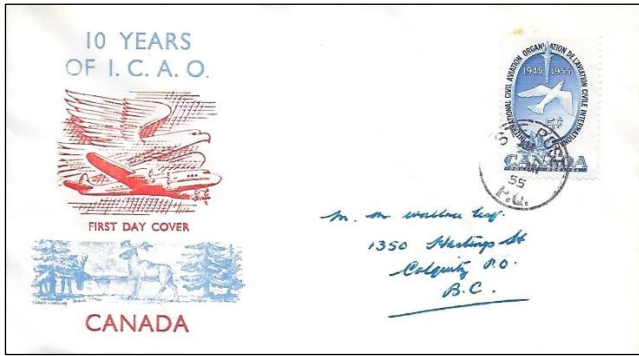 10 YEARS
OF I. C. A. O.
FIRST DAY COVER
CANADA
INTERNATIONAL CIVIL AVIATION ORGANIZATION DE L'AVIATION CIVILE INTERNATIONALE
1945 1955
5¢
CANADA
POSTES POSTAGE
STE. ROSE
55
P.Q.
M. M. Wallace Esq.
1350 Hastings St
Colquitz P.O.
B.C.